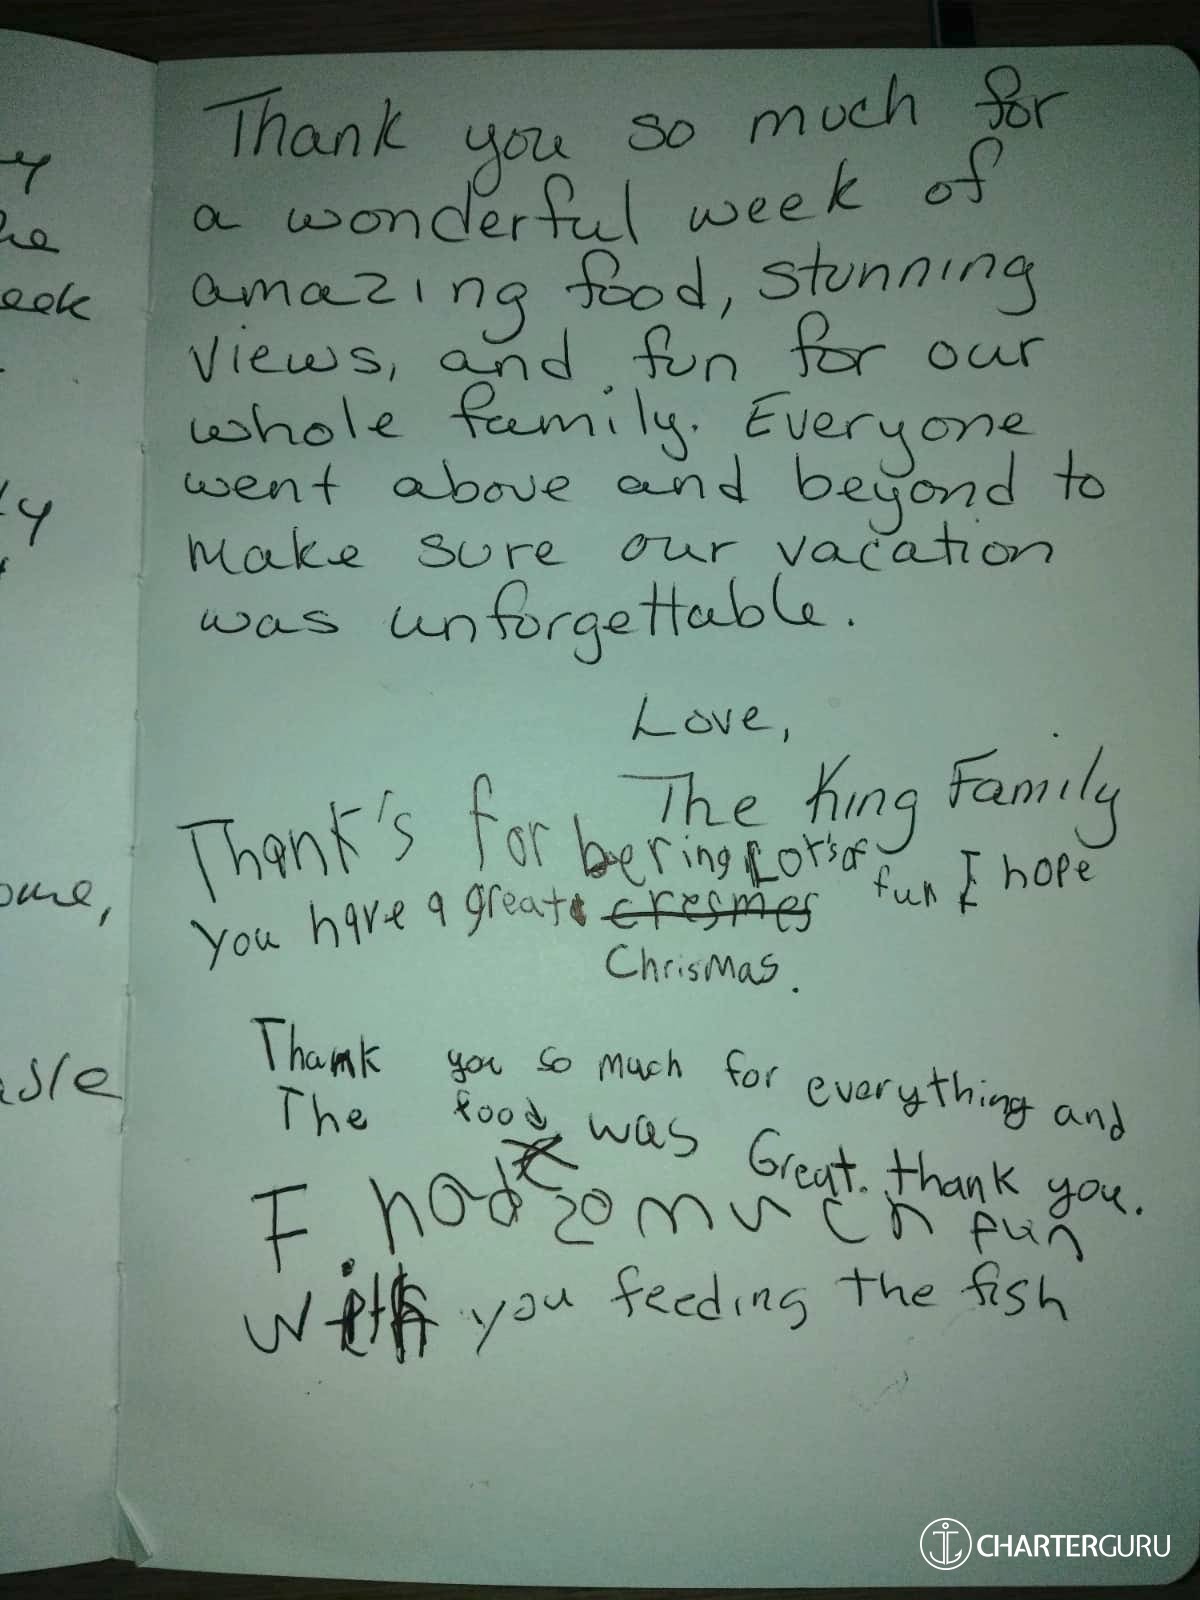 y
he
eek
ly
ome,
Thank you so much for
a wonderful week of
amazing food, stunning
views, and fun for our
whole family. Everyone
went above and beyond to
make sure our vacation
was unforgettable.
Love,
The King Family
Thank's for bering Lot's of fun I hope
you have a great cresmes
Chrismas.
Thank you so much for everything and
The food was Great. thank you.
I had so much fun
with you feeding the fish
CHARTERGURU